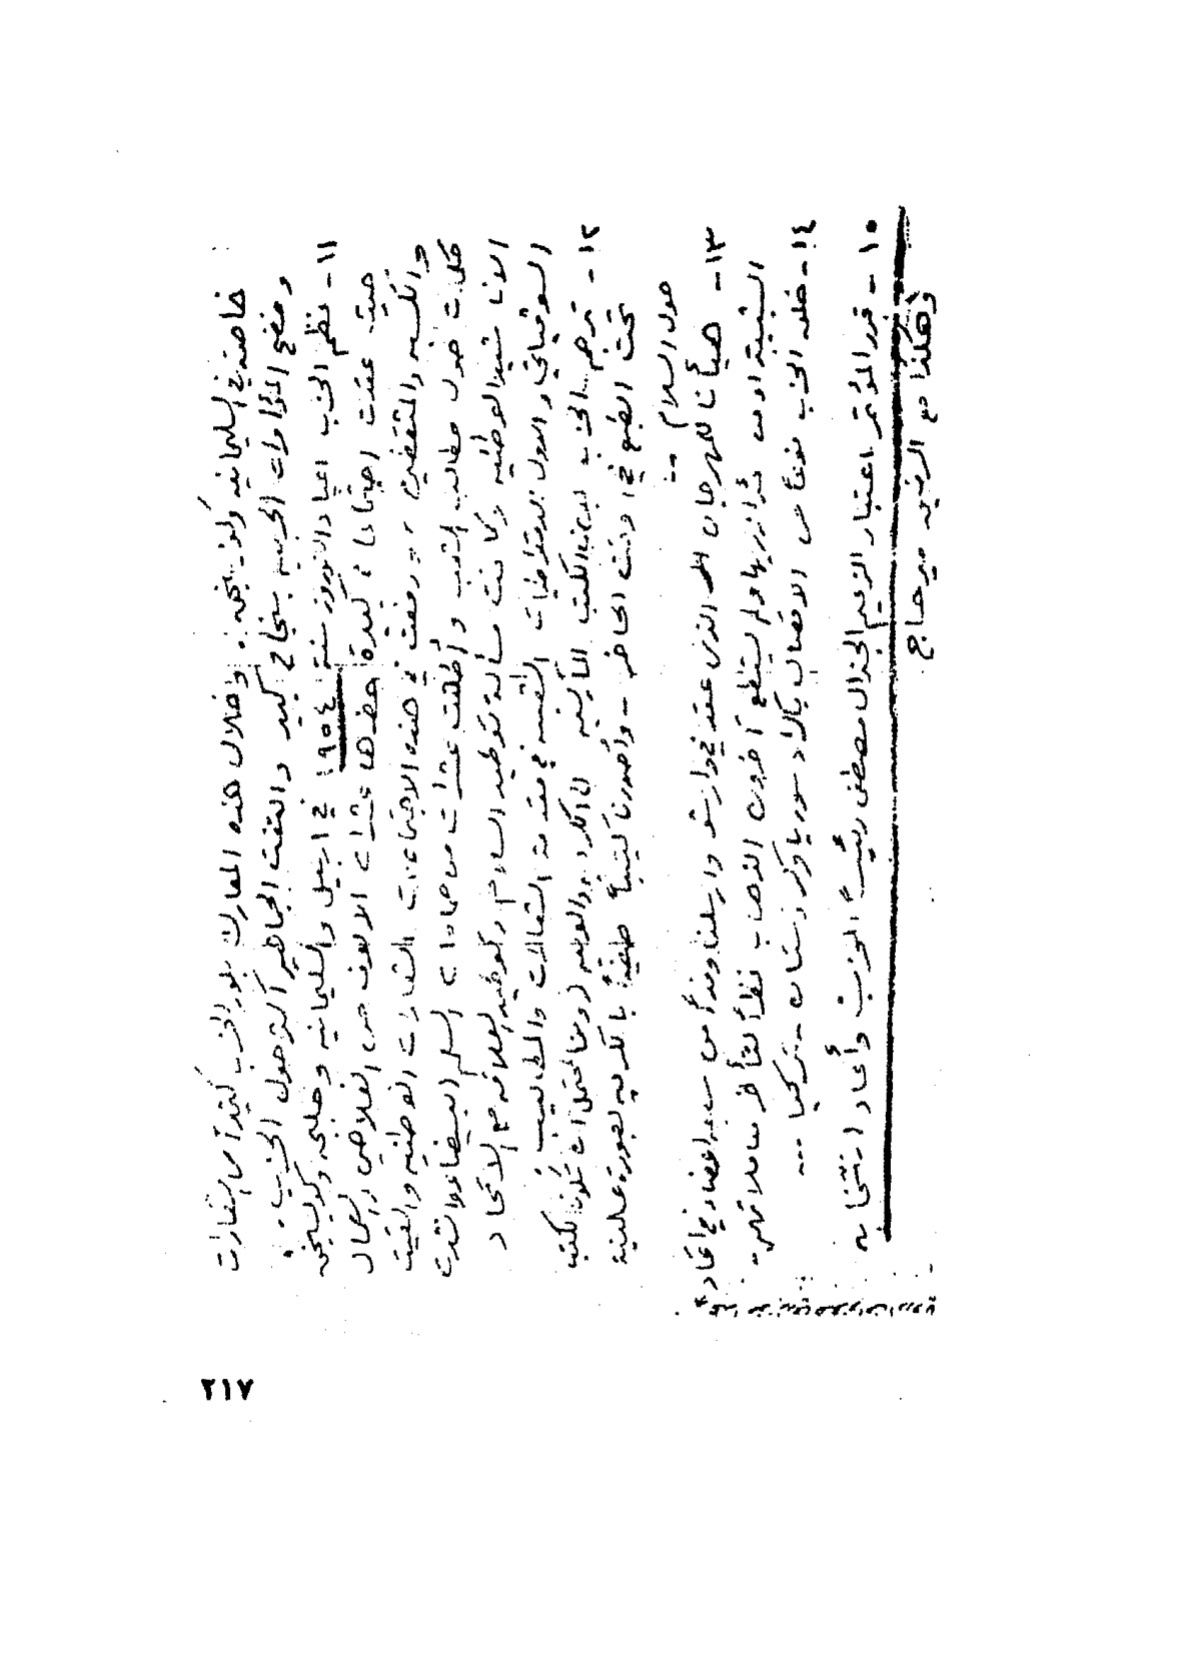 خاصة في السليمانيه وكويسنجه. وخلال هذه المعارك بلور الحزب كثيراً من الشعارات
وفضح المؤامرات الحربيه بنجاح كبير والتفت الجماهير أكثر حول الحزب.
١١- نظم الحزب اعياد النوروز سنة ١٩٥٤ في اربيل والسليمانيه وحلبجه وكويسنجه
حيث عقدت اجتماعات كبيرة حضرها عشرات الالوف من الفلاحين والعمال
والكسبه والمثقفين، ورفعت في هذه الاجتماعات الشعارات الوطنيه والقيت
كلمات حول مطالب الشعب وأطلقت عشرات من حمامات السلم البيضاء وانشدت
الاناشيد الوطنيه وكانت مسألة توطيد السلام وتوطيد العلاقه مع الاتحاد
السوفياتي والدول الديمقراطيات الشعبيه في مقدمة الشعارات والمطاليب.
١٢- ترجم الحزب بعض الكتب الماركسيه الى الكرديه والعربيه (ومن المحتمل ان تكون الكتب
تحت الطبع في الوقت الحاضر - وأصدرنا كتيباً طبياً بالكرديه بصورة علنية
حول السلام ..
١٣- هيأنا للمهرجان الذي عقد في وارشو وارسلنا وفداً من سبعة اعضاء في اتحاد
الشبيبة الديمقراطية ولم يستطع آخرون الذهاب نظراً لتأخر معاملاتهم.
١٤- خلف الحزب نوعاً من الاتصال بأكراد سوريا وكردستان - تركيا ...
١٥- قرر المؤتمر اعتبار الزعيم الجنرال مصطفى رئيساً للحزب وأعاد انتخابه
وهكذا مع الرفيق ميرحاج
٢١٧